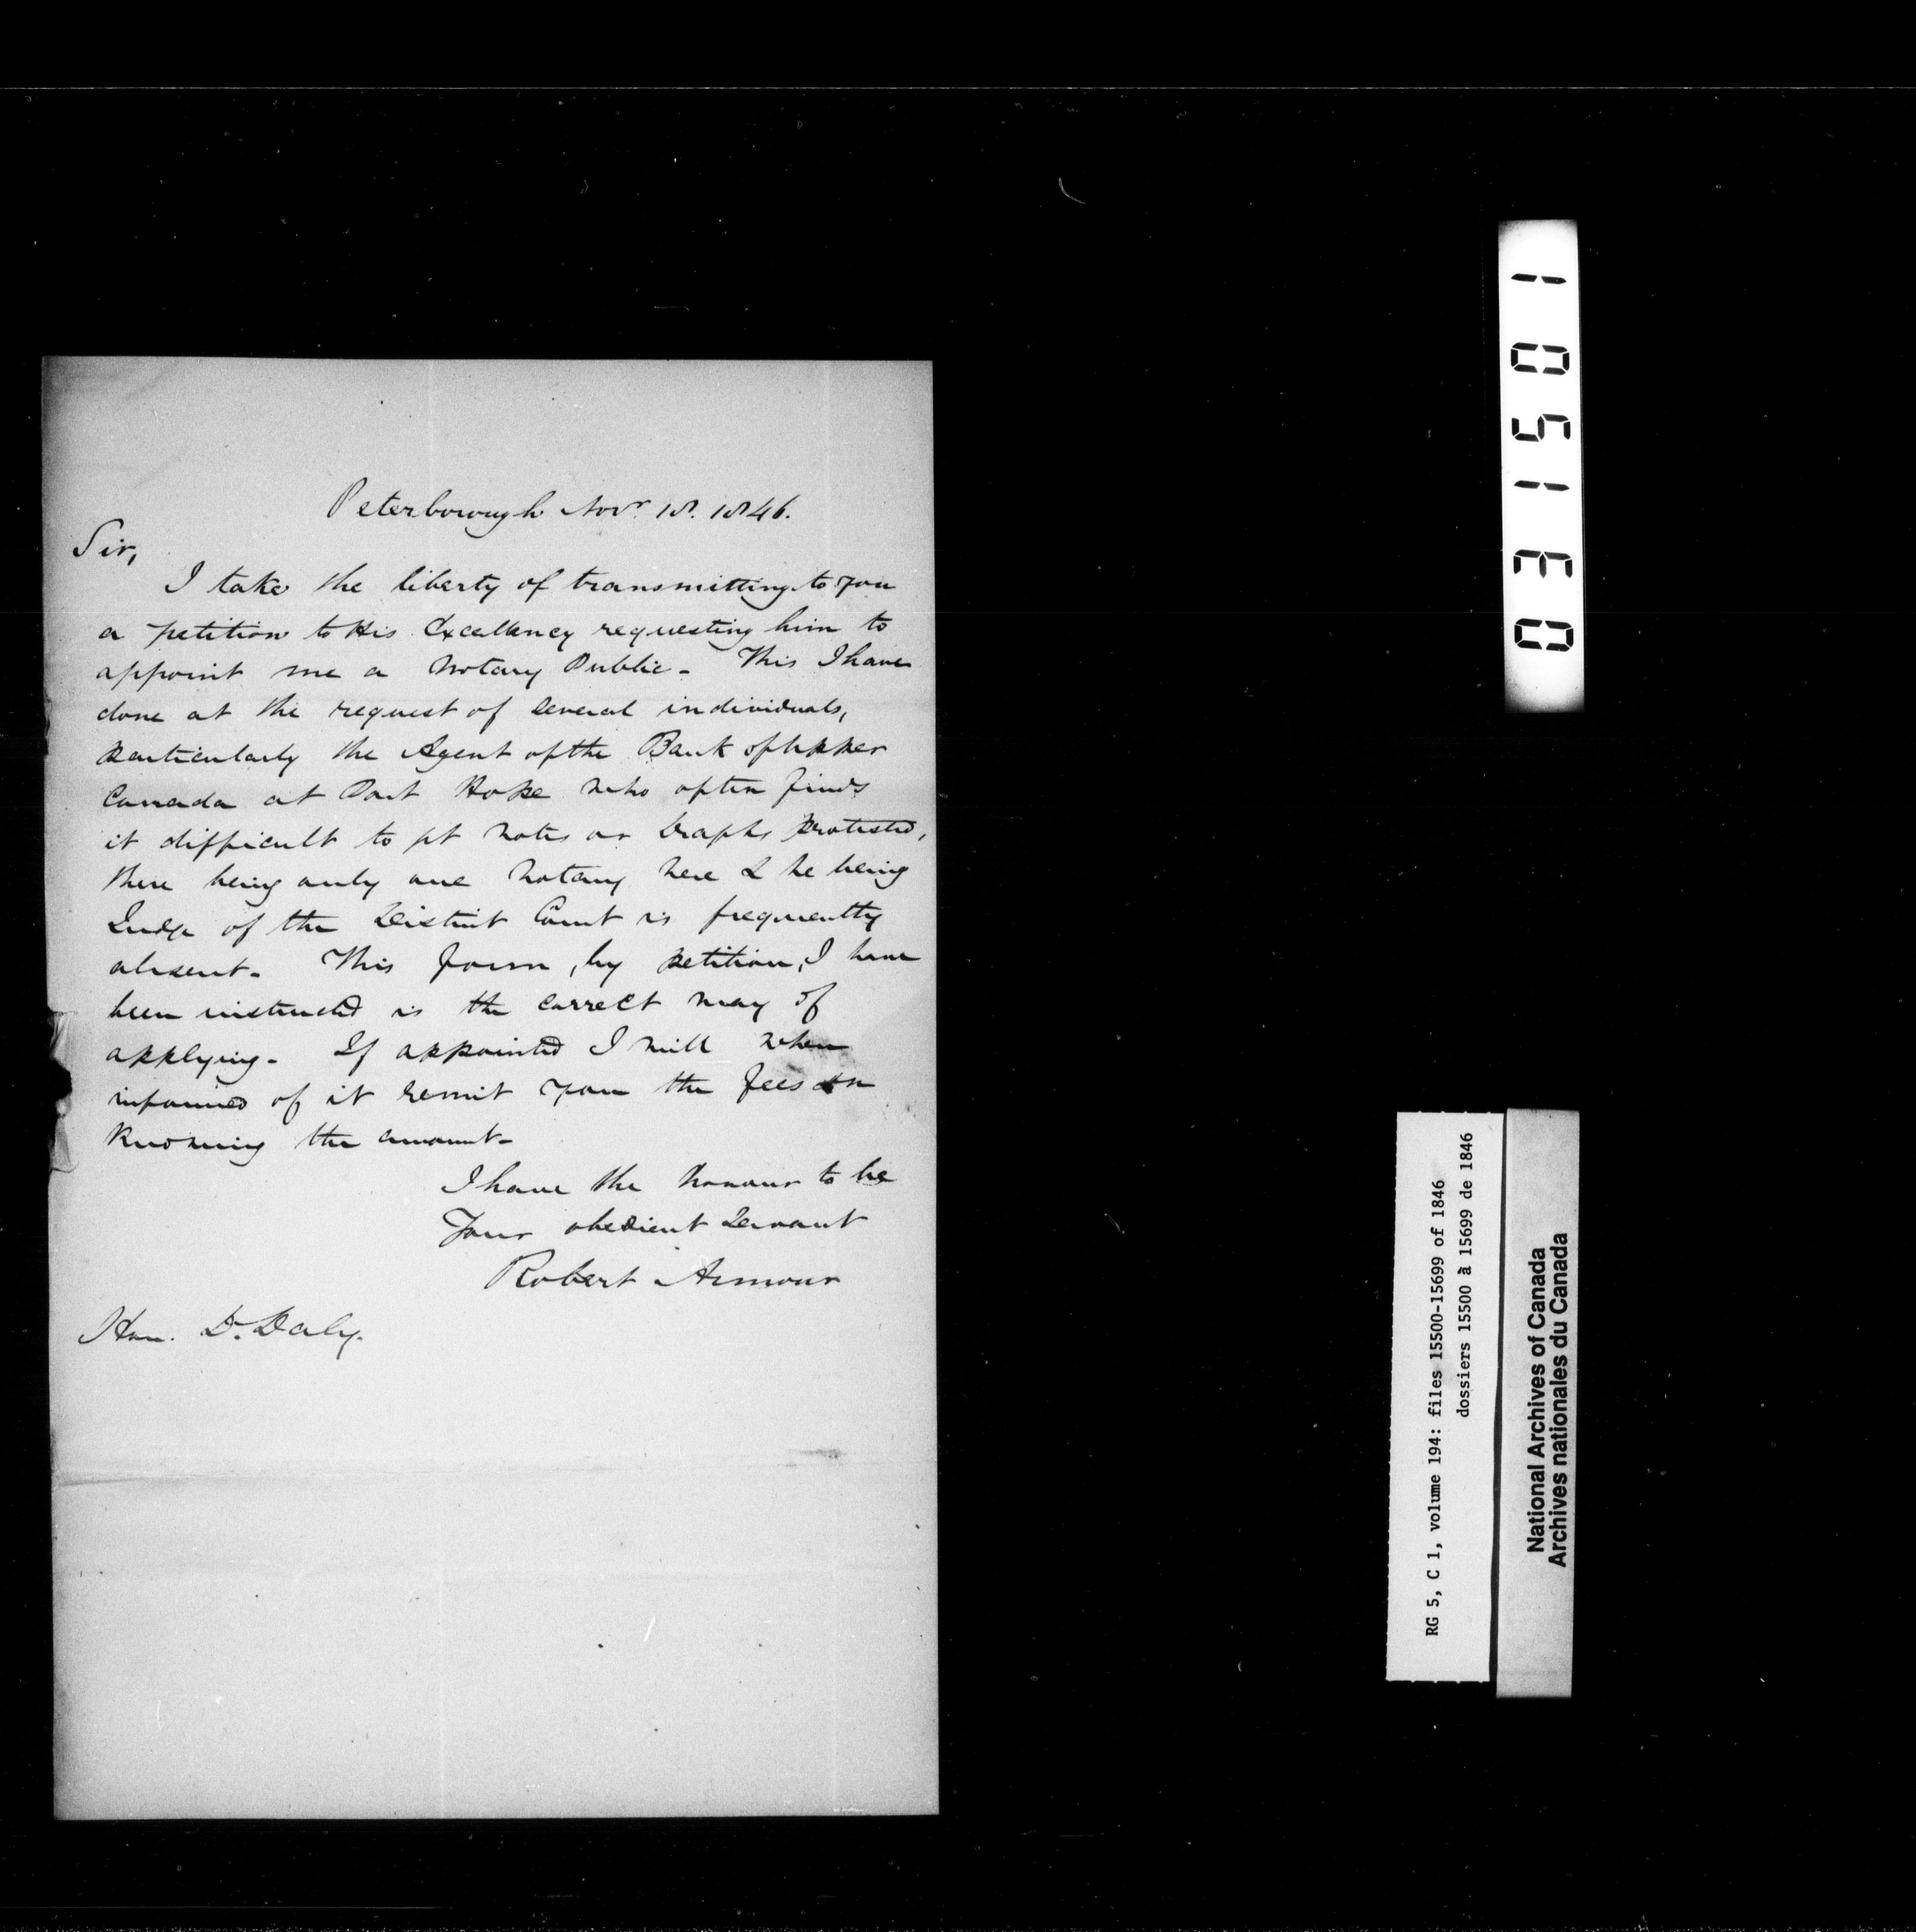 Peterborough Novr. 18. 1846.
Sir,
I take the liberty of transmitting to you
a petition to His Excellency requesting him to
appoint me a Notary Public - This I have
done at the request of several individuals,
particularly the Agent of the Bank of Upper
Canada at Port Hope who often finds
it difficult to get notes or Drafts protested,
there being only one Notary here & he being
Judge of the District Court is frequently
absent - This form, by petition, I have
been instructed is the correct way of
applying - If appointed I will when
informed of it remit you the fees on
knowing the amount -
I have the honour to be
Your obedient Servant
Robert Armour
Hon. D. Daly.
031501
RG 5, C 1, volume 194: files 15500-15699 of 1846
dossiers 15500 à 15699 de 1846
National Archives of Canada
Archives nationales du Canada